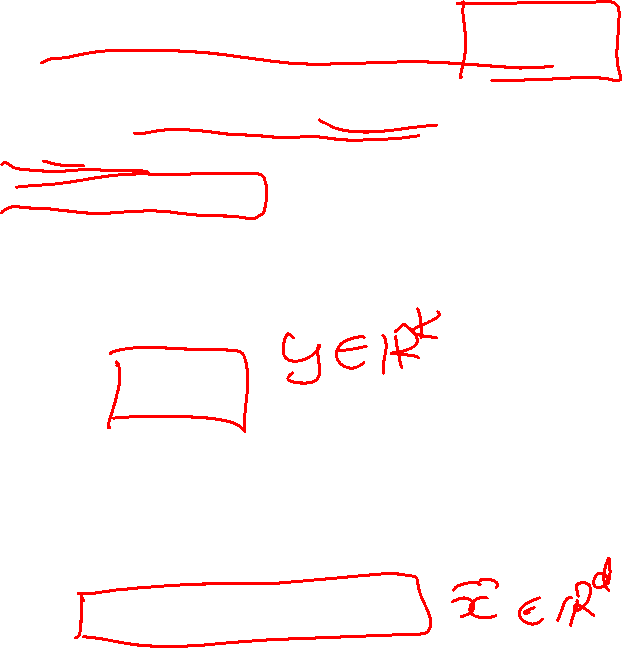 y ∈ ℝᵏ
x̃ ∈ ℝᵈ